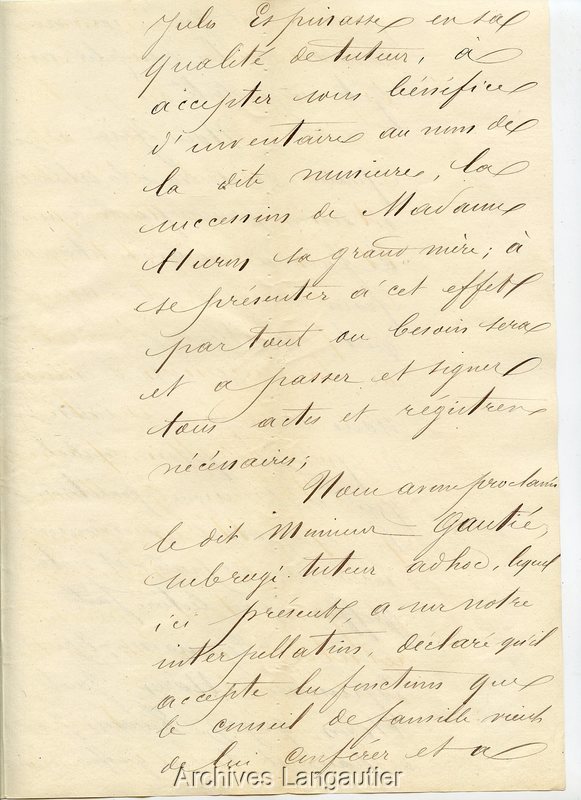 Jules Espinasse en sa
qualité de tuteur, à
accepter sous bénéfice
d'inventaire au nom de
la dite mineure, la
succession de Madame
Huron sa grand mère; à
se présenter à cet effet
partout ou besoin sera
et a passer et signer
tous actes et régistres
nécéssaires;
Nous avons proclamé
le dit Monsieur Gautié,
subrogé tuteur adhoc, lequel
ici présent, a sur notre
interpellation, déclaré qu'il
accepte les fonctions que
le conseil de famille vient
de lui conférer et a
Archives Langautier